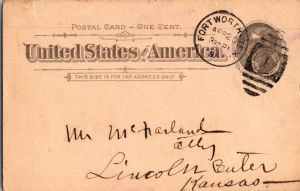 POSTAL CARD – ONE CENT.
United States of America.
THIS SIDE IS FOR THE ADDRESS ONLY.
FORT WORTH
Mr McFarland
Atty
Lincoln Center
Kansas